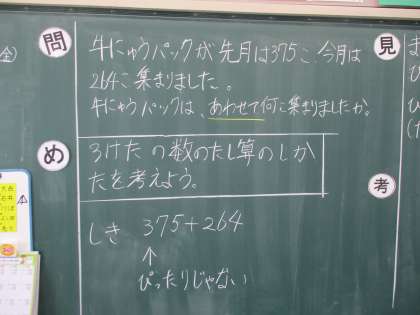 問
牛にゅうパックが先月は375こ、今月は
264こ集まりました。
牛にゅうパックは、あわせて何こ集まりましたか。
め
3けたの数のたし算のしか
たを考えよう。
しき 375+264
↑
ぴったりじゃない
見
考